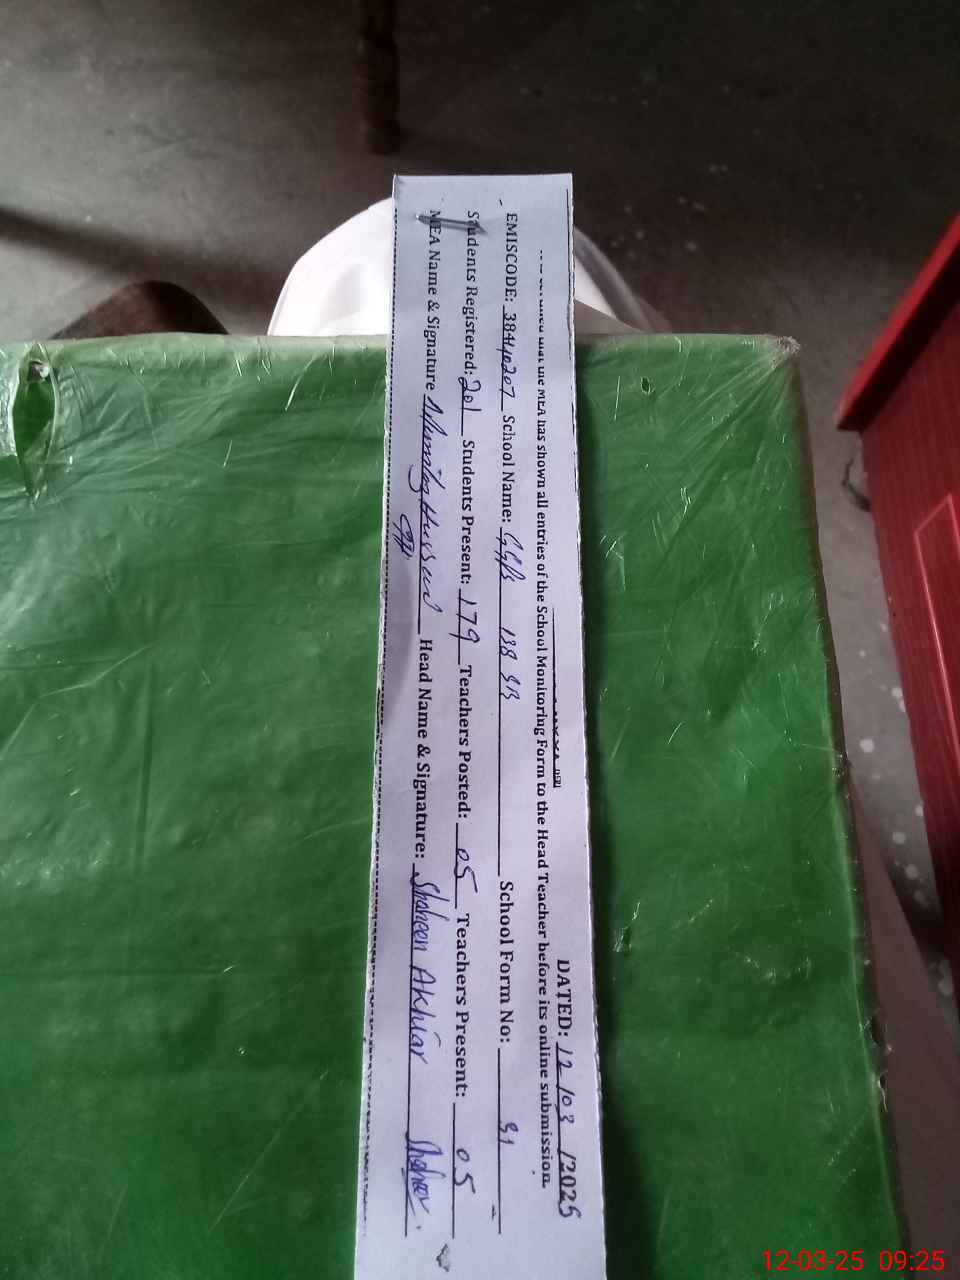 DATED: 12/03/2025
that the MEA has shown all entries of the School Monitoring Form to the Head Teacher before its online submission.
EMISCODE: 38440207 School Name: GGPS 138 SB School Form No: 31
Students Registered: 201 Students Present: 179 Teachers Posted: 05 Teachers Present: 05
MEA Name & Signature Hussain Head Name & Signature: Shaheen Akhtar Shaheen
12-03-25 09:25